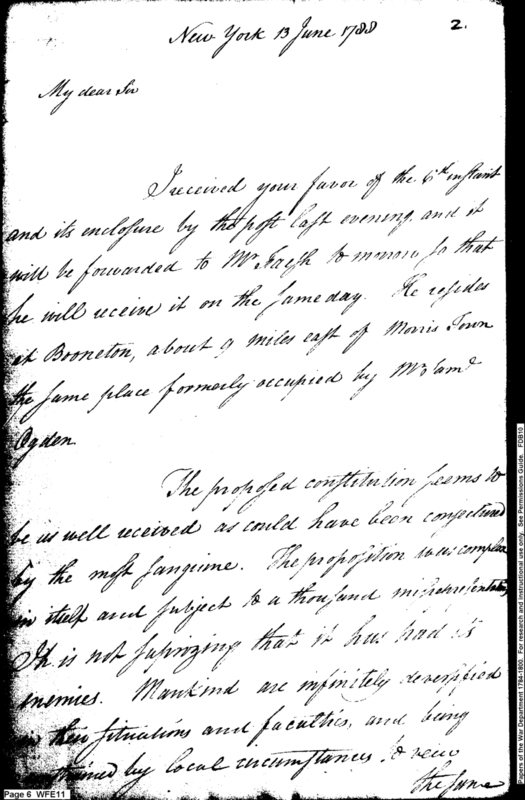 New York 13 June 1788
2.
My dear Sir
I received your favor of the 6th instant
and its enclosure by the post last evening and it
will be forwarded to Mr Faesh to morrow so that
he will receive it on the same day. He resides
at Booneton, about 9 miles east of Morris Town
the same place formerly occupied by Mr Samd
Ogden
The proposed constitution seems to
be as well received as could have been conjectured
by the most sanguine. The proposition was complex
in itself and subject to a thousand misrepresentations
It is not suprizing that it has had its
enemies. Mankind are infinitely deversified
in their situations and faculties, and being
by local circumstances to view
the same
Page 6 WFE11
Papers of the War Department 1784-1800. For research and instructional use only. See Permissions Guide. FDB10